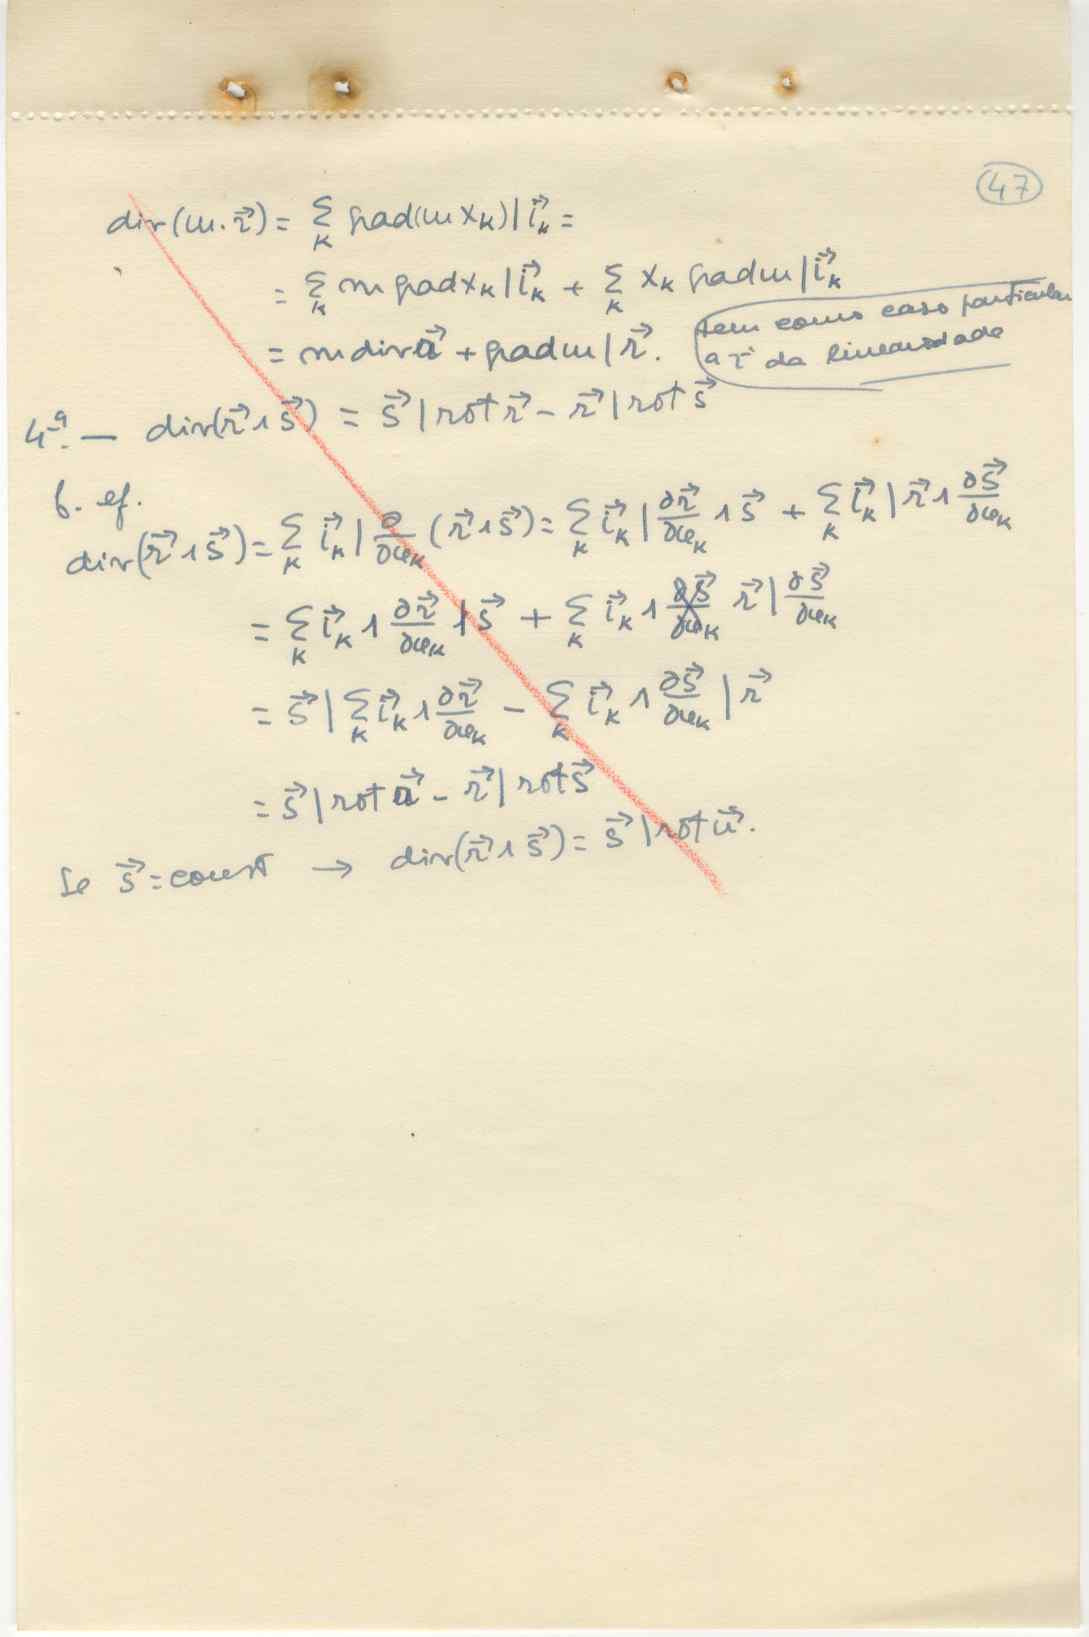 47
div(m.r⃗) = Σ_K grad(m x_K) | i⃗_K =
= Σ_K m grad x_K | i⃗_K + Σ_K x_K grad m | i⃗_K
= m div u⃗ + grad m | r⃗.
tem como caso particular
a r⃗ da linearidade
4ª. — div(r⃗ ∧ s⃗) = s⃗ | rot r⃗ - r⃗ | rot s⃗
P. ef.
div(r⃗ ∧ s⃗) = Σ_K i⃗_K | ∂/∂x_K (r⃗ ∧ s⃗) = Σ_K i⃗_K | ∂r⃗/∂x_K ∧ s⃗ + Σ_K i⃗_K | r⃗ ∧ ∂s⃗/∂x_K
= Σ_K i⃗_K ∧ ∂r⃗/∂x_K | s⃗ + Σ_K i⃗_K ∧ r⃗ | ∂s⃗/∂x_K
= s⃗ | Σ_K i⃗_K ∧ ∂r⃗/∂x_K - Σ_K i⃗_K ∧ ∂s⃗/∂x_K | r⃗
= s⃗ | rot u⃗ - r⃗ | rot s⃗
Se s⃗ = const → div(r⃗ ∧ s⃗) = s⃗ | rot u⃗.